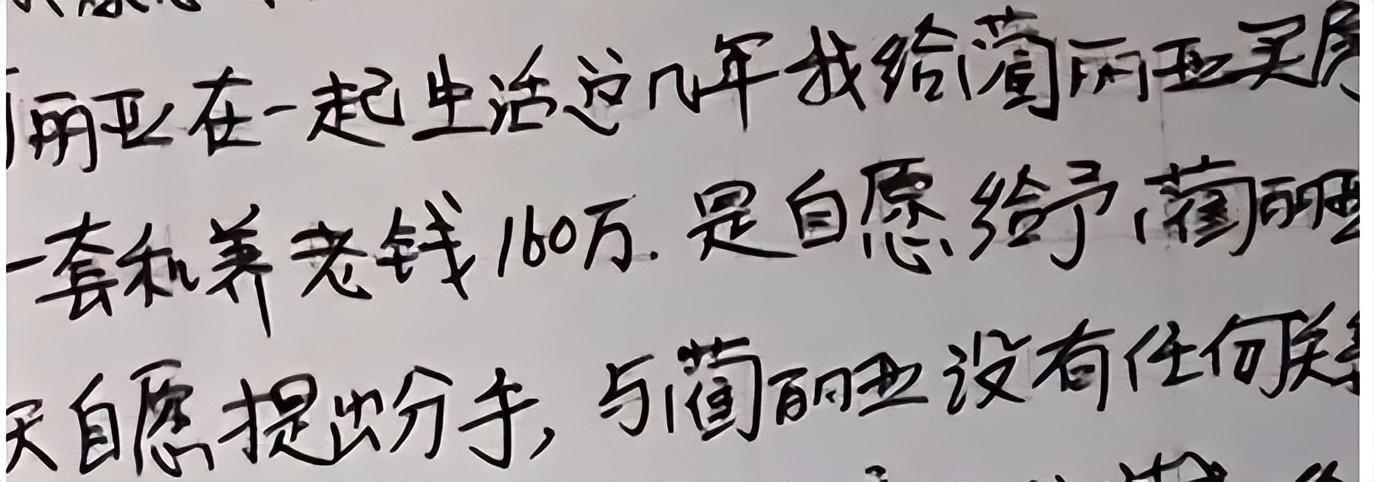 丽亚在一起生活这几年我给蔺丽亚买房
一套和养老钱160万.是自愿给予蔺丽亚
天自愿提出分手,与蔺丽亚没有任何关系